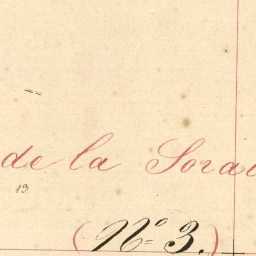 de la
13
(Nº 3.)